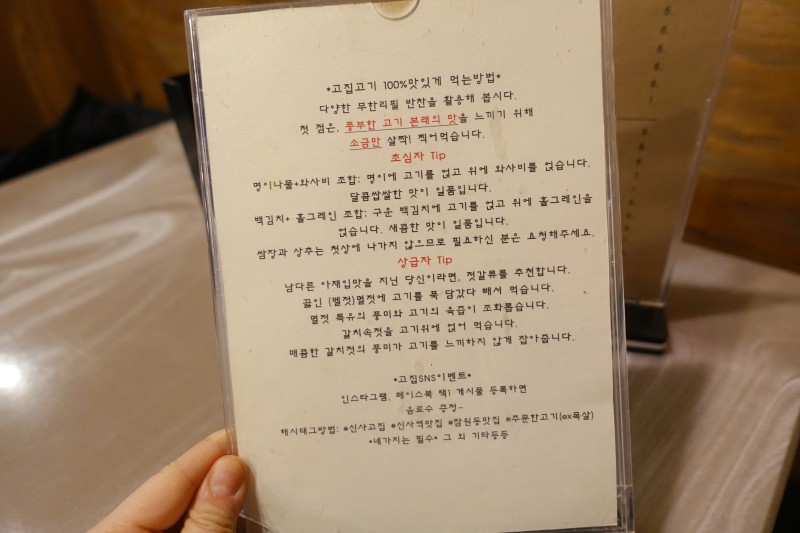 *고집고기 100%맛있게 먹는방법*
다양한 무한리필 반찬을 활용해 봅시다.
첫 점은, 풍부한 고기 본래의 맛을 느끼기 위해
소금만 살짝! 찍어먹습니다.
초심자 Tip
명이나물+와사비 조합: 명이에 고기를 얹고 위에 와사비를 얹습니다.
달콤쌉쌀한 맛이 일품입니다.
백김치+ 홀그레인 조합: 구운 백김치에 고기를 얹고 위에 홀그레인을
얹습니다. 새콤한 맛이 일품입니다.
쌈장과 상추는 첫상에 나가지 않으므로 필요하신 분은 요청해주세요.
상급자 Tip
남다른 아재입맛을 지닌 당신이라면, 젓갈류를 추천합니다.
끓인 (멜젓)멜젓에 고기를 푹 담갔다 빼서 먹습니다.
멜젓 특유의 풍미와 고기의 육즙이 조화롭습니다.
갈치속젓을 고기위에 얹어 먹습니다.
매콤한 갈치젓의 풍미가 고기를 느끼하지 않게 잡아줍니다.
*고집SNS이벤트*
인스타그램, 페이스북 택1 게시물 등록하면
음료수 증정~
해시태그방법: #신사고집 #신사역맛집 #잠원동맛집 #주문한고기(ex목살)
*네가지는 필수* 그 외 기타등등